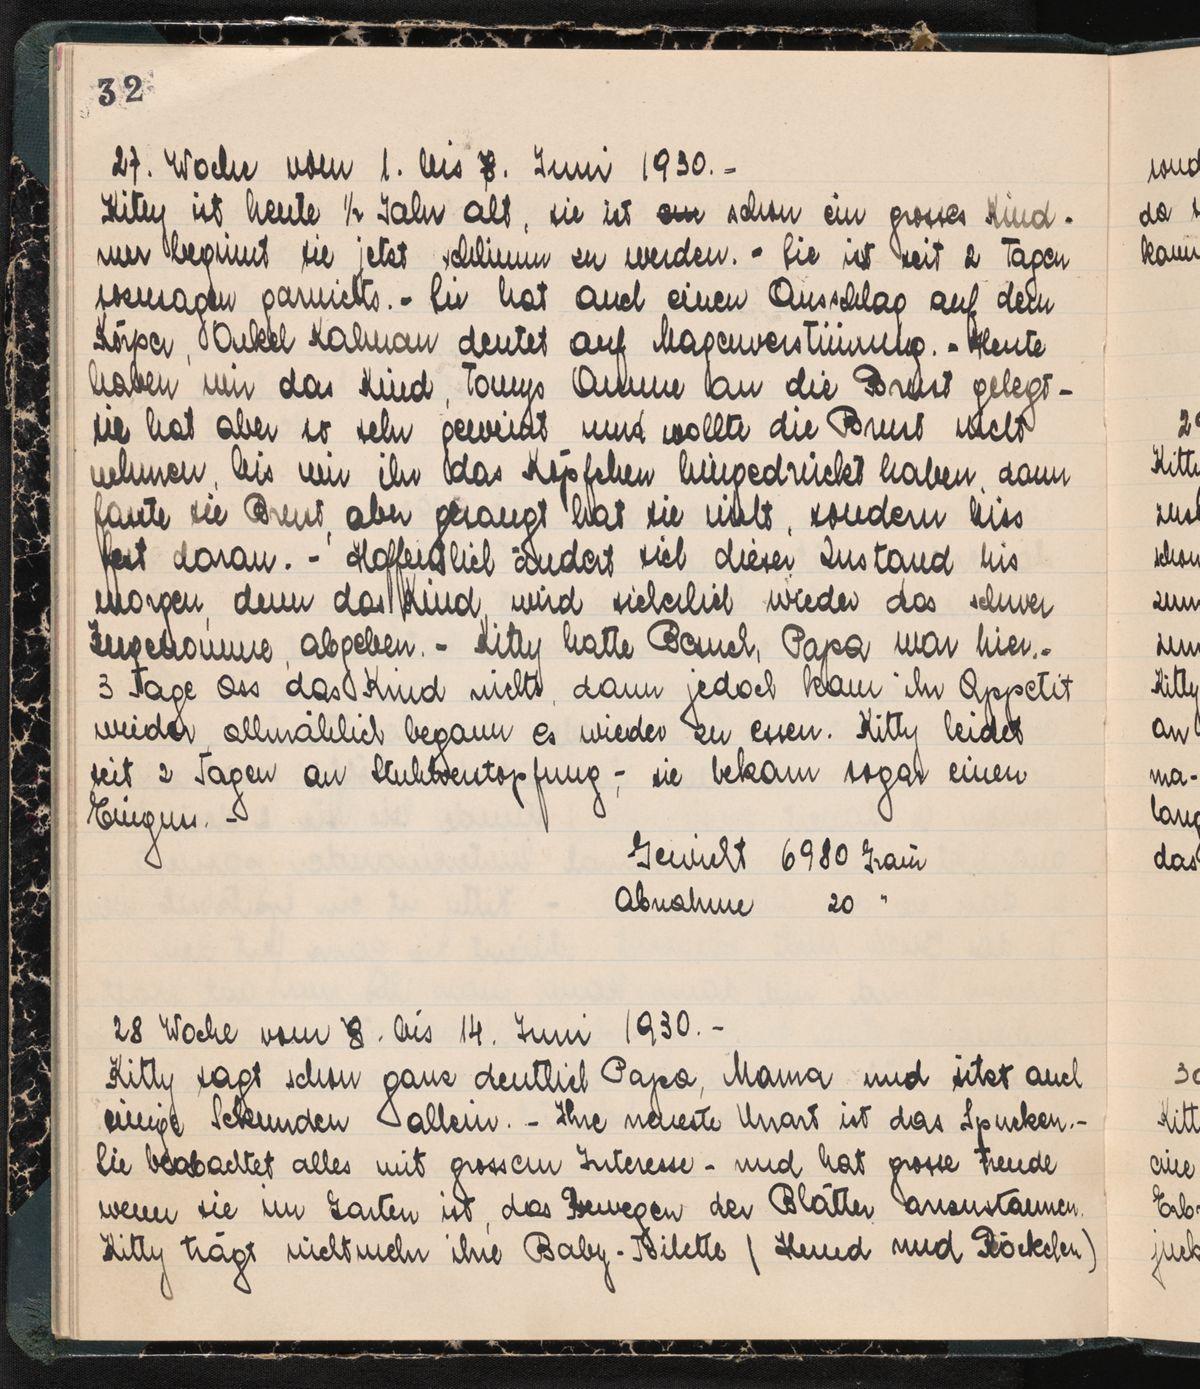 32
27. Woche vom 1. bis 8. Juni 1930.-
Kitty ist heute ½ Jahr alt, sie ist schon ein grosses Kind -
nur beginnt sie jetzt schlimm zu werden. - Sie ist seit 2 Tagen
sozusagen garnichts. - Sie hat auch einen Ausschlag auf dem
Körper, Onkel Kalman deutet auf Magenverstimmung. - Heute
haben wir das Kind, Tomys Amme an die Brust gelegt -
sie hat aber so sehr geweint und wollte die Brust nicht
nehmen, bis wir ihr das Köpfchen hingedrückt haben, dann
fasste sie Brust, aber gesaugt hat sie nicht, sondern biss
fest daran. - Hoffentlich ändert sich dieser Zustand bis
morgen, denn das Kind wird sicherlich wieder das schwer
Zugenomme, abgeben. - Kitty hatte Besuch, Papa war hier.-
3 Tage ass das Kind nichts, dann jedoch kam ihr Appetit
wieder, allmählich begann es wieder zu essen. Kitty leidet
seit 2 Tagen an Stuhlverstopfung -, sie bekam sogar einen
Einguss. -
Gewicht 6980 Gram
Abnahme 20 "
28 Woche vom 8. bis 14. Juni 1930.-
Kitty sagt schon ganz deutlich Papa, Mama und sitzt auch
einige Sekunden allein. - Ihre neueste Unart ist das Spucken.-
Sie beobachtet alles mit grossem Interesse - und hat grosse Freude
wenn sie im Garten ist, das Bewegen der Blätter anzustaunen.
Kitty trägt nichtmehr ihre Baby-Toilette (Hemd und Röckchen)